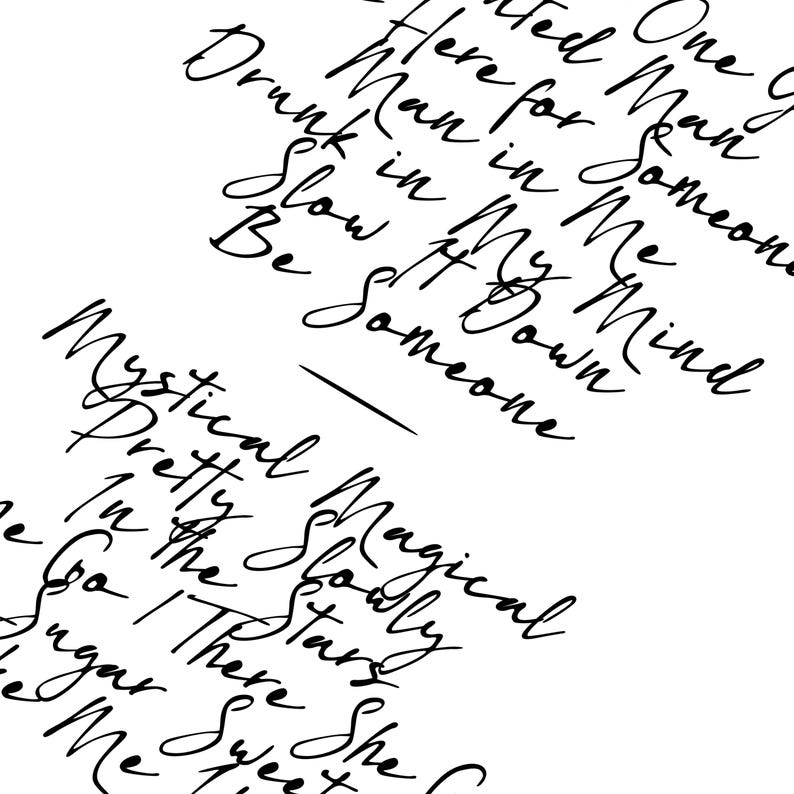 One
Man
Here for Someone
Man in Me
Drunk in My Mind
Slow It Down
Be Someone
Mystical Magical
Pretty Slowly
In the Stars
Go / There She
Sugar Sweet
Me